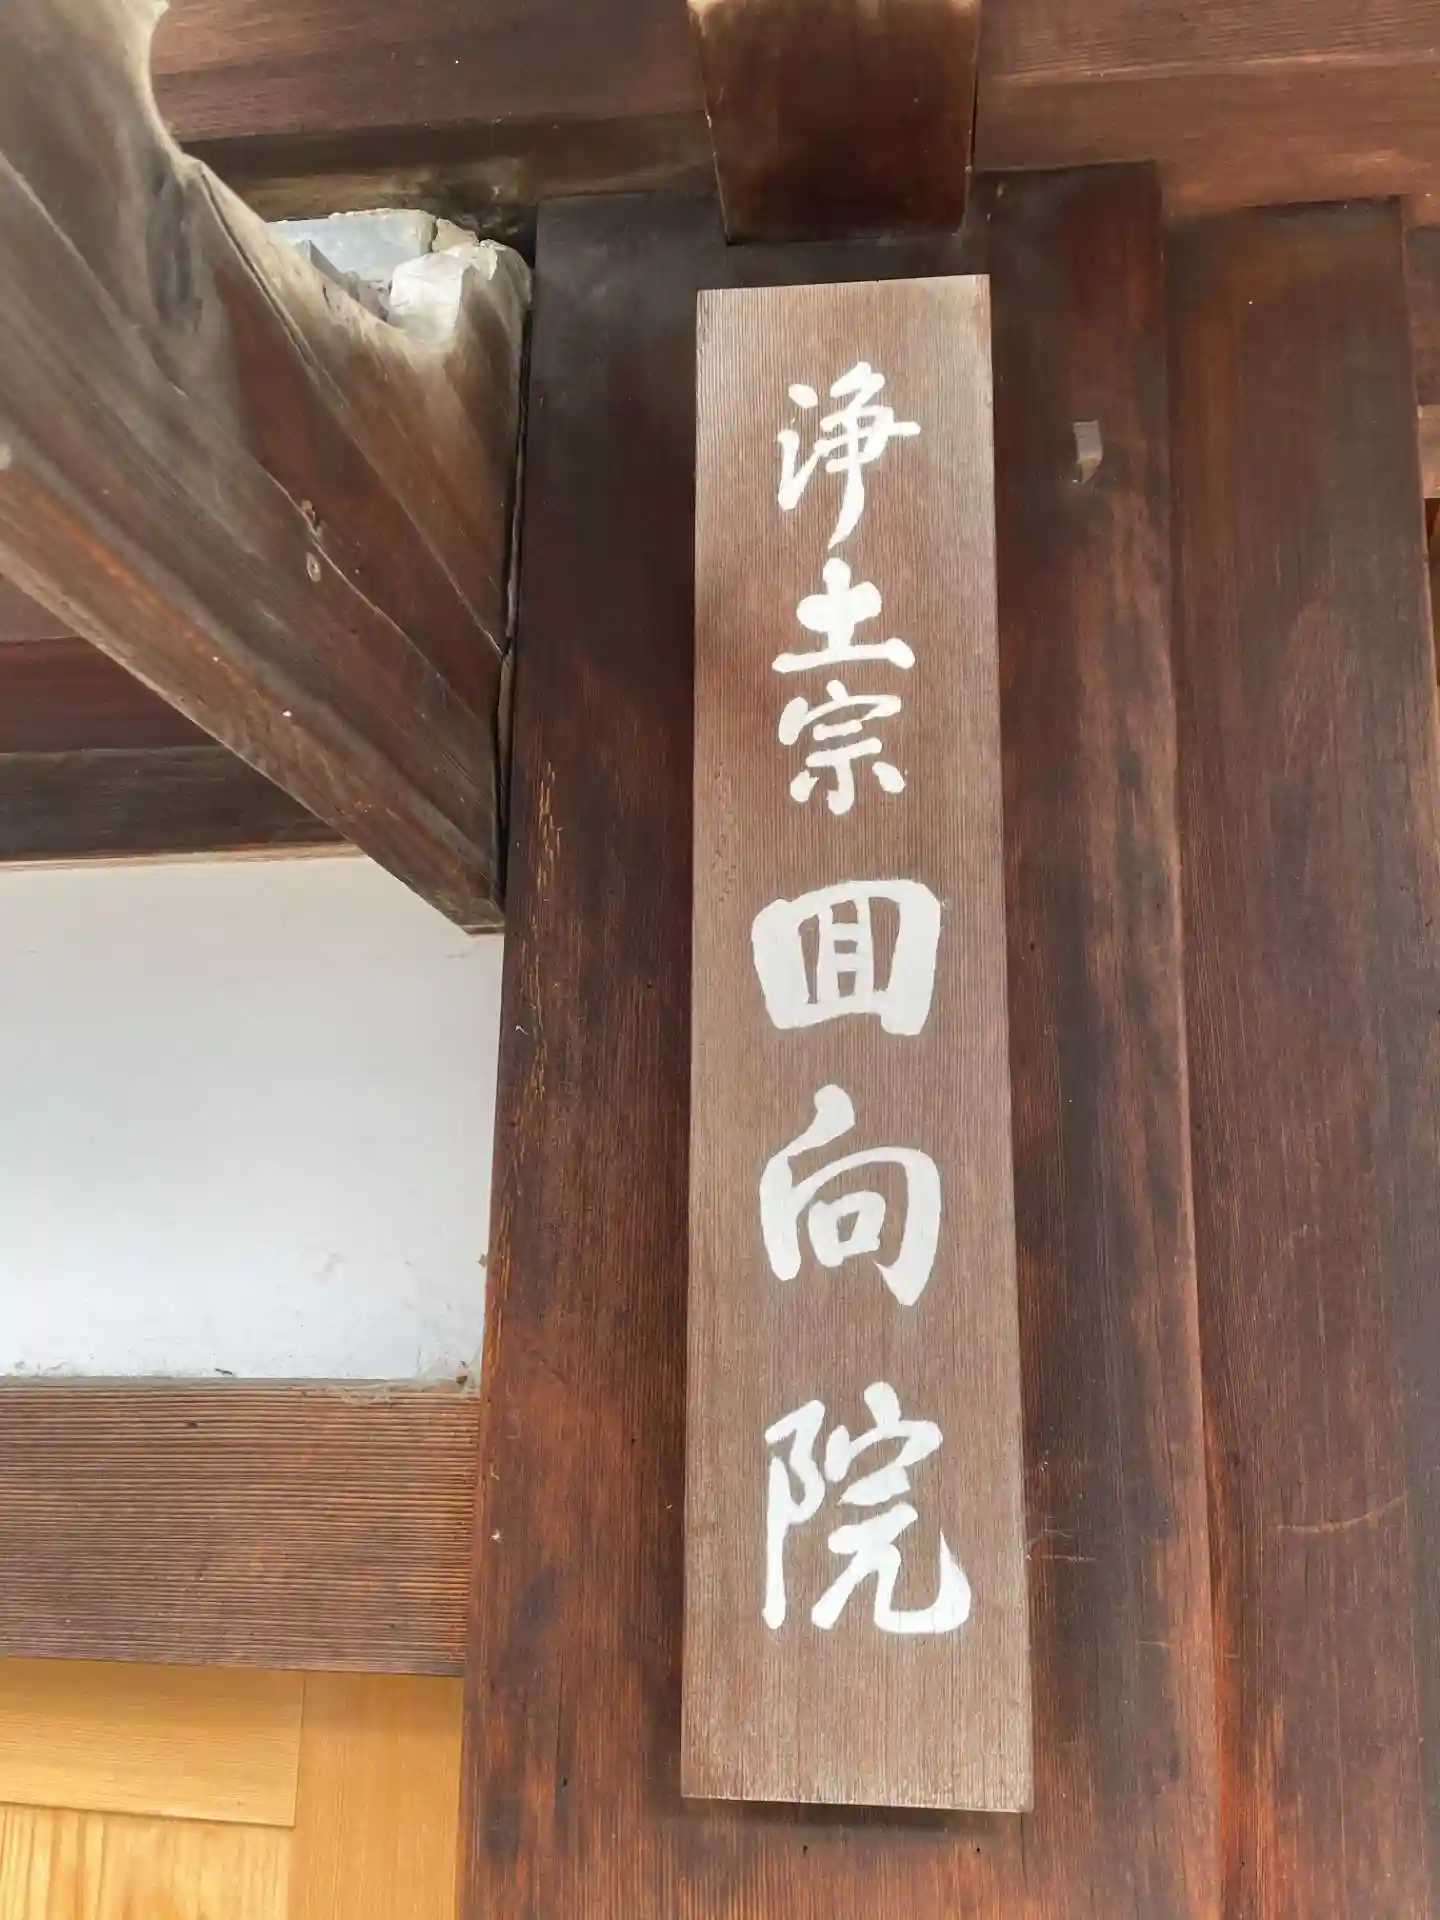 浄土宗囬向院